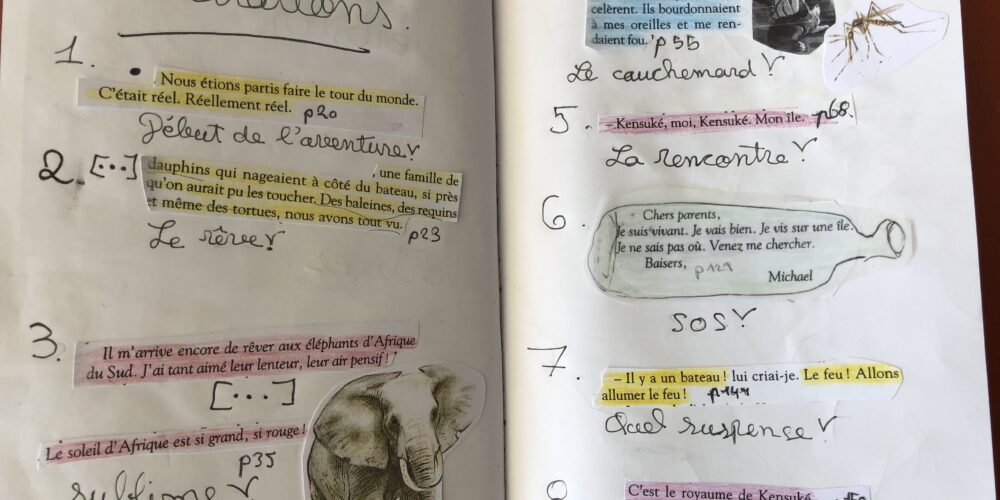 1.
Nous étions partis faire le tour du monde.
C'était réel. Réellement réel. p20
Début de l'aventure!
2. [...] une famille de
dauphins qui nageaient à côté du bateau, si près
qu'on aurait pu les toucher. Des baleines, des requins
et même des tortues, nous avons tout vu. p23
Le rêve!
3.
Il m'arrive encore de rêver aux éléphants d'Afrique
du Sud. J'ai tant aimé leur lenteur, leur air pensif !
[...]
Le soleil d'Afrique est si grand, si rouge !
p35
sublime!
célèrent. Ils bourdonnaient
à mes oreilles et me ren-
daient fou. p55
Le cauchemard!
5. – Kensuké, moi, Kensuké. Mon île. p68
La rencontre!
6.
Chers parents,
Je suis vivant. Je vais bien. Je vis sur une île.
Je ne sais pas où. Venez me chercher.
Baisers, p121
Michael
SOS!
7.
– Il y a un bateau ! lui criai-je. Le feu ! Allons
allumer le feu ! p144
Quel suspense!
C'est le royaume de Kensuké